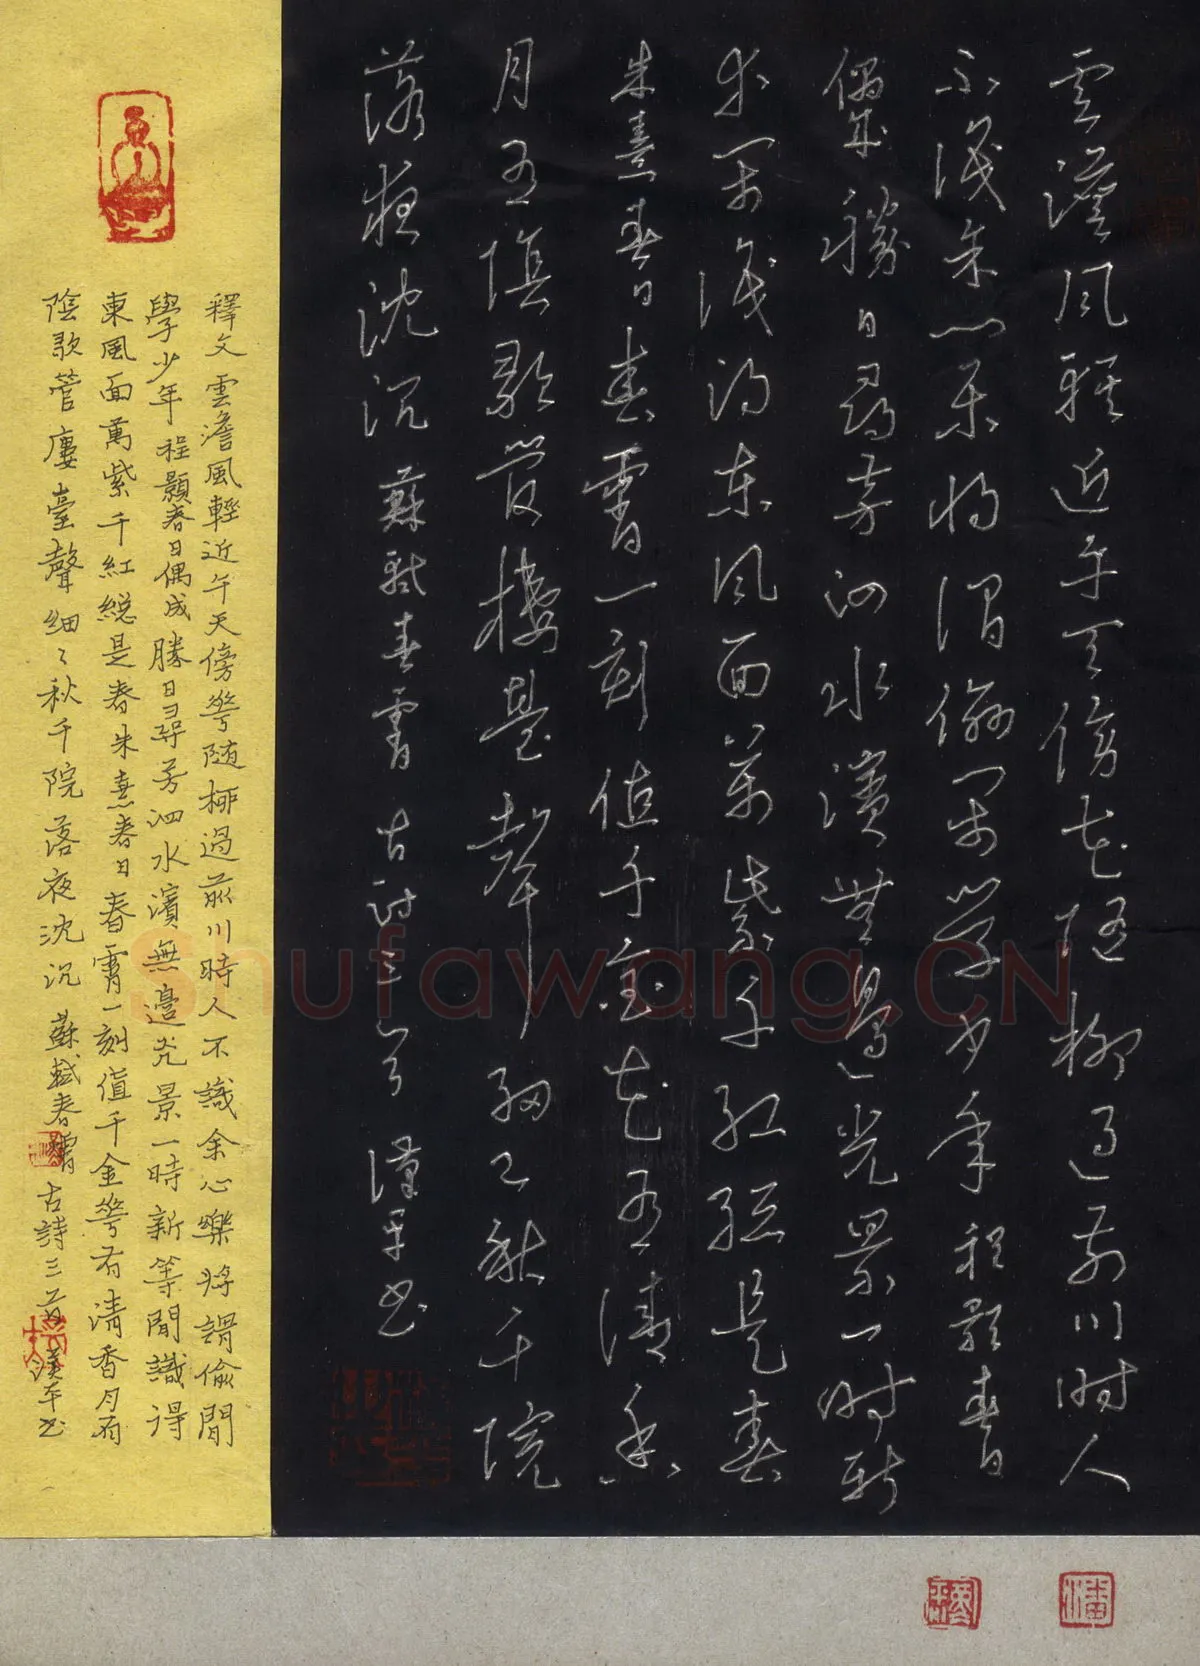 雲澹風輕近午天傍花隨柳過前川時人
不識余心樂將謂偷閒學少年程顥春日
偶成勝日尋芳泗水濱無邊光景一時新
等閒識得東風面萬紫千紅總是春
朱熹春日春霄一刻值千金花有清香
月有陰歌管樓臺聲細々秋千院
落夜沈沉蘇軾春霄古詩三首漢平书
釋文雲澹風輕近午天傍花随柳過前川時人不識余心樂將謂偷閒
學少年程顥春日偶成勝日尋芳泗水濱無邊光景一時新等閒識得
東風面萬紫千紅総是春朱熹春日春霄一刻值千金花有清香月有
陰歌管廔臺聲細々秋千院落夜沈沉蘇軾春霄古詩三首漢平书
Shufawang.CN